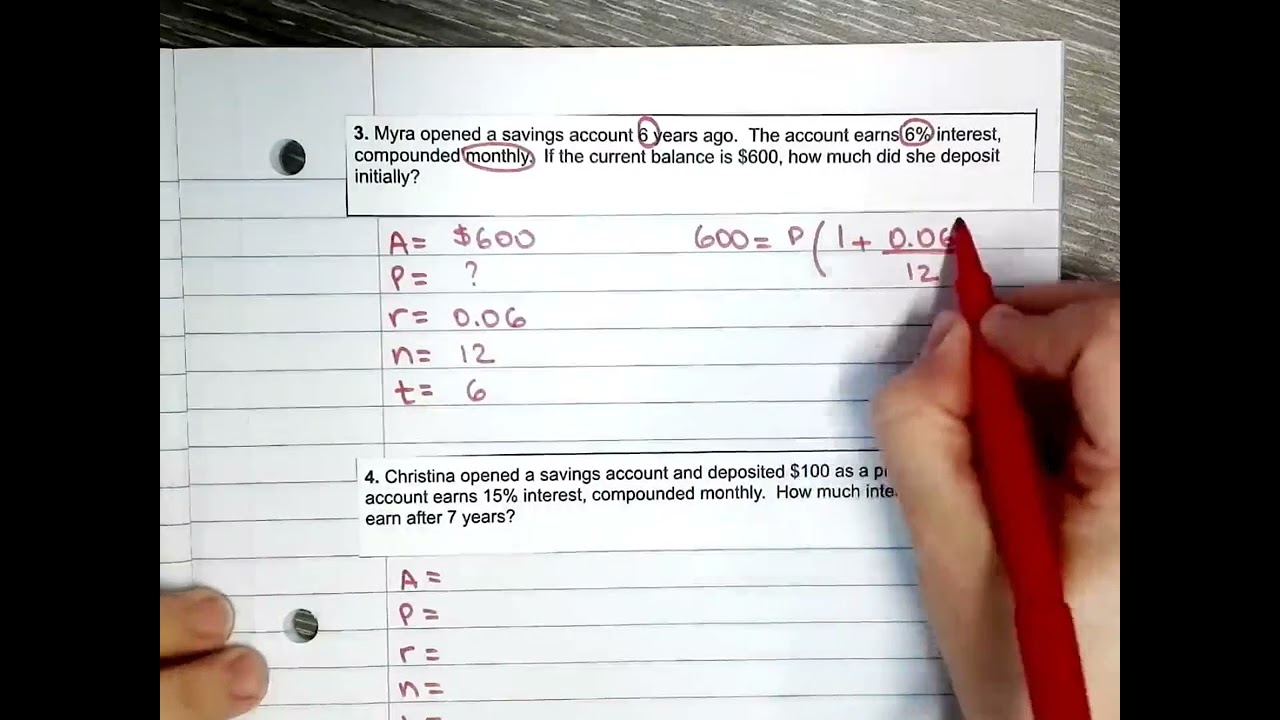 3. Myra opened a savings account 6 years ago. The account earns 6% interest,
compounded monthly. If the current balance is $600, how much did she deposit
initially?
A= $600
600= P(1+ 0.06
12
P= ?
r= 0.06
n= 12
t= 6
4. Christina opened a savings account and deposited $100 as a
account earns 15% interest, compounded monthly. How much
earn after 7 years?
A=
P=
r=
n=